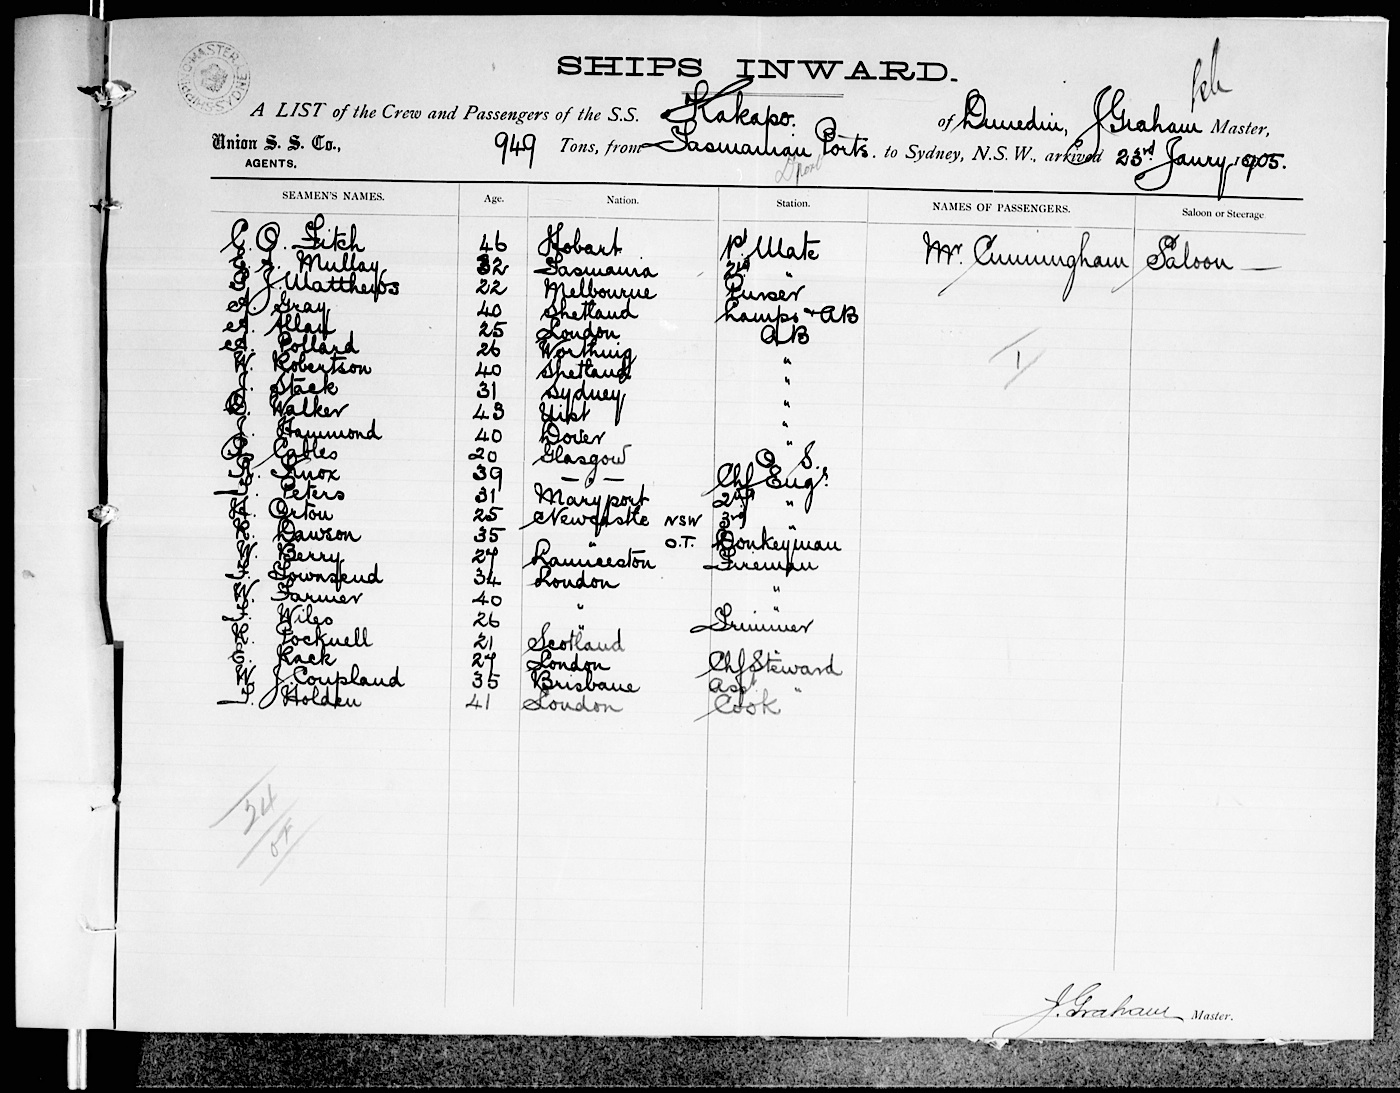 SHIPPING MASTER
SHIPS INWARD.
A LIST of the Crew and Passengers of the S.S. Kakapo. of Dunedin, J Graham Master,
Union S. S. Co.,
AGENTS.
949 Tons, from Tasmanian Ports. to Sydney, N.S.W., arrived 23rd Janry, 1905.
SEAMEN'S NAMES. Age. Nation. Station. NAMES OF PASSENGERS. Saloon or Steerage
C. O. Fitch 46 Hobart 1st Mate Mr. Cunningham Saloon —
Mullay 32 Tasmania 2nd "
J. Matthews 22 Melbourne Purser
Gray 40 Shetland Lamps & AB
A. Allan 25 London AB
Pollard 26 Worthing "
W. Robertson 40 Shetland "
J. Stack 31 Sydney "
Walker 43 Uist "
Hammond 40 Dover "
Cables 20 Glasgow O S.
Knox 39 — " — Chf Engr
Peters 31 Maryport 2nd "
Orton 25 Newcastle NSW 3rd "
H. Dawson 35 " O.T. Donkeyman
W. Berry 27 Launceston Fireman
Townsend 34 London "
Farmer 40 " "
Wiles 26 " Trimmer
H. Pocknell 21 Scotland
C. Rack 27 London Chf Steward
W. J. Coupland 35 Brisbane Asst "
Holden 41 London Cook
1
24
J. Graham Master.